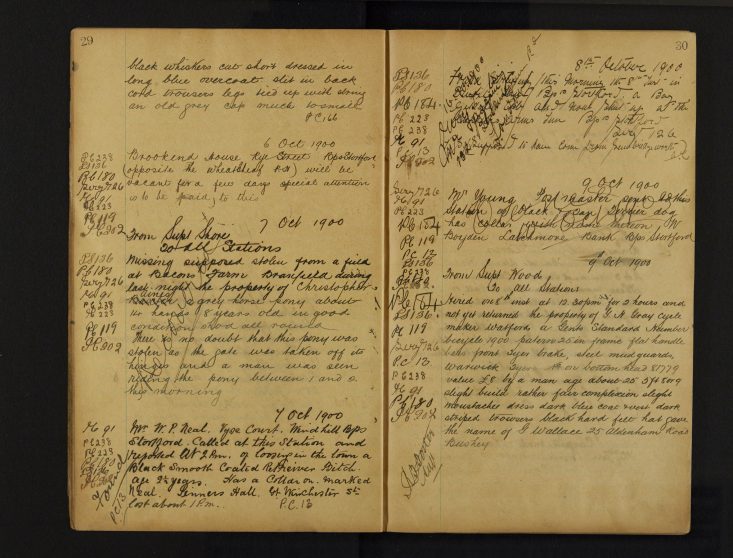 29
black whiskers cut short dressed in
long blue overcoat slit in back
cord trousers legs tied up with string
an old grey cap much to small
PC 166
6 Oct 1900
PC 238
LS 136
Pc 180
Sergt 26
Pc 91
PC 223
Pc 119
Pc 202
Brookend House Rye Street Bps Stortford
(opposite the Wheatsheaf P.H) will be
vacant for a few days special attention
to be paid to this
7 Oct 1900
From Supt Shore
to all Stations
LS 136
Pc 180
Sergt 26
Pc 91
PC 238
Pc 223
Pc 119
Pc 202
Missing supposed stolen from a field
at Beacons Farm Bramfield during
last night the property of Christopher
a grey horse pony about
14 hands 8 years old in good
condition shod all round
There is no doubt that this pony was
stolen as the gate was taken off its
hinges and a man was seen
riding the pony between 1 and 2
this morning
7 Oct 1900
Pc 91
PC 238
PC 223
Pc 180
Found
PC 13
Mr. W. P. Neal. Court. Windhill Bps
Stortford. Called at this Station and
reported at 2 Pm. of loosing in the town a
Black Smooth Coated Retriever Bitch
age 2½ years. Has a Collar on. marked
Neal. Hall. Gt Winchester St
lost about 1 Pm. P.C. 13
30
8th October 1900
LS 136
Pc 180
Pc 184
PC 223
PC 238
Pc 91
PC 13
Pc 202
this Morning the 8th Inst in
Bps Stortford a Bay
and now put up at the
Inn Bps Stortford
Sergt 26
supposed to have come from
9 Oct 1900
Sergt 26
Pc 91
PC 223
Pc 184
Pc 119
PC 13
LS 136
PC 238
Mr Young Postmaster
Station Black dog
has collar with name thereon W
Boyden Latchmore Bank Bps Stortford
9th Oct 1900
From Supt Wood
to all Stations
Pc 184
LS 136
Pc 119
Sergt 26
P.C. 13
PC 238
Pc 91
Pc 180
Pc 202
Hired on 8th inst at 12.30pm for 2 hours and
not yet returned the property of Gray cycle
maker Watford a Gents Standard Number
bicycle 1900 pattern 25 in frame flat handle
bars front tyre brake, steel mudguards,
Warwick tyres on bottom head 81779
value £8 by a man age about 25 5ft 8 or 9
slight build rather fair complexion slight
moustache dress dark blue coat & vest dark
striped trousers black hard felt hat gave
the name of G Wallace 25 Aldenham Road
Bushey